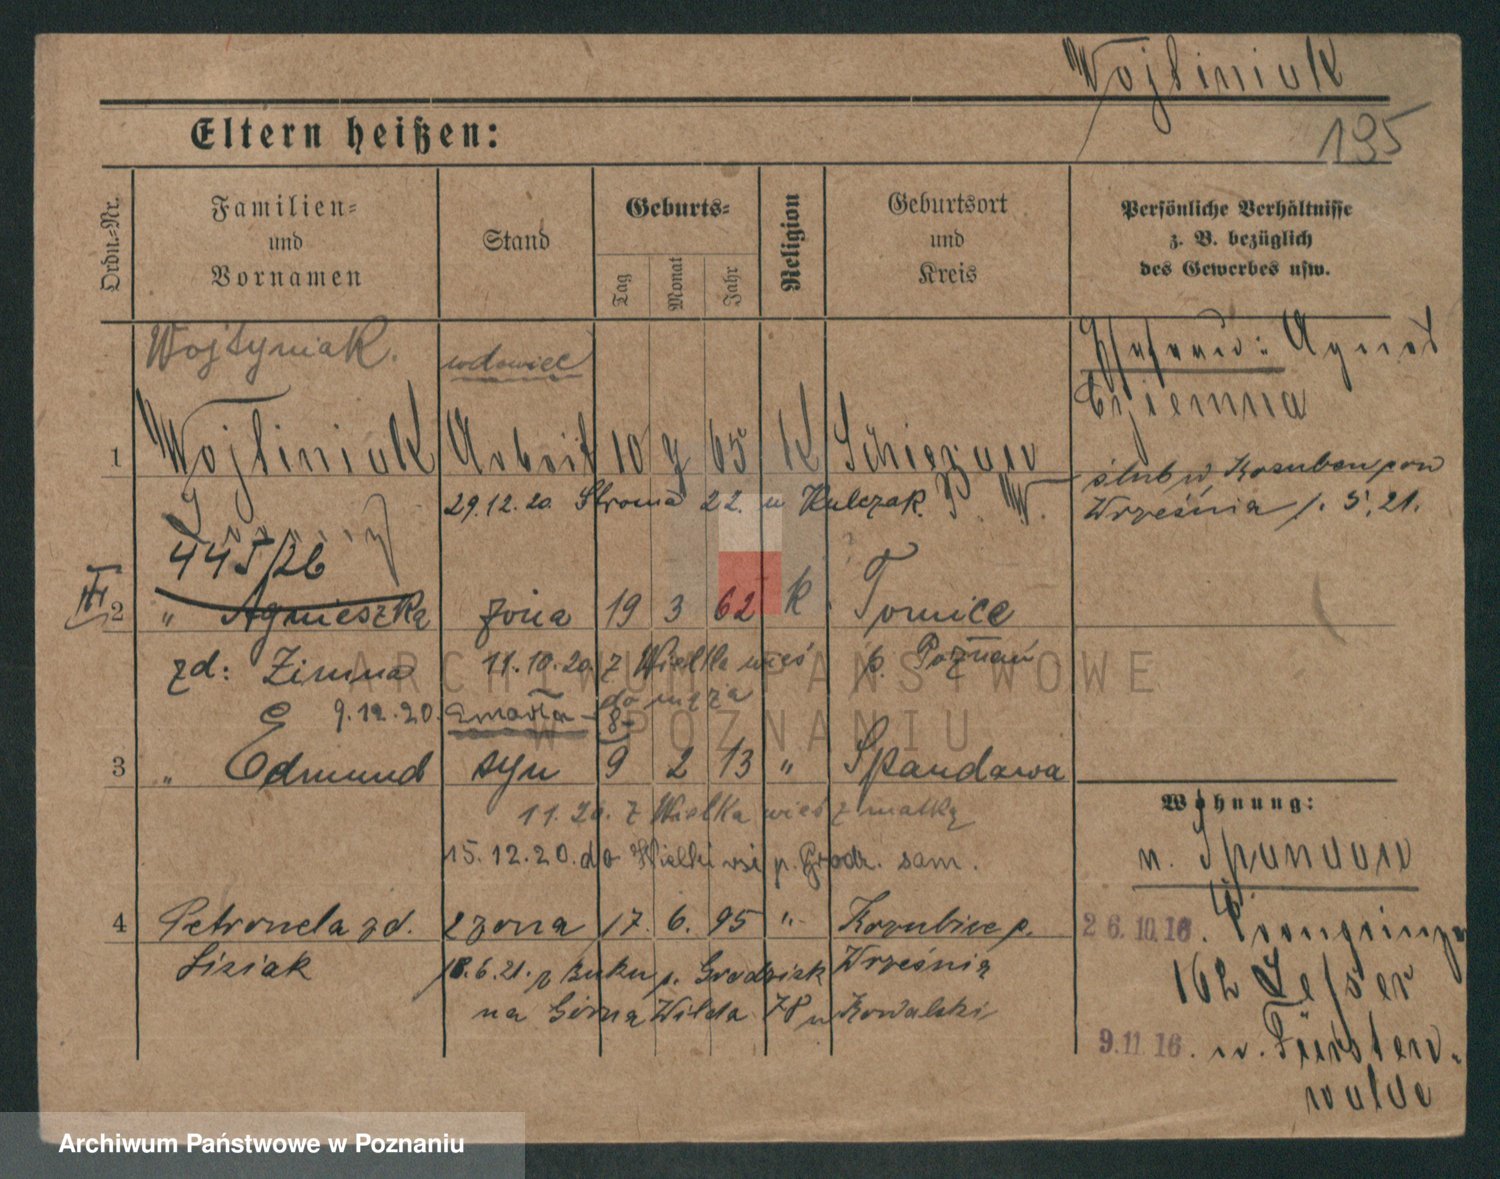 Wojtiniak
195
Eltern heißen:
Ordn.-Nr.
Familien- und Vornamen
Stand
Geburts-
Tag
Monat
Jahr
Religion
Geburtsort und Kreis
Persönliche Verhältnisse
z. B. bezüglich
des Gewerbes usw.
Wojtyniak.
wdowiec
Ehefrau: Agnes
1 Wojtiniak Arbeit 10 65 K
29.12.20. Stroma 22. u Kulczak.
ślub w
Września 1.5.21.
445/26
2 " Agnieszka żona 19 3 62 k. Tomice
zd: Zimna 11.10.20. z Wielka wieś p. Poznań
do męża
9.12.20. zmarła
3 " Edmund syn 9 2 13 " Spandawa
11.20. z Wielka wieś z matką
15.12.20. do Wielki wsi p. Grodz. sam.
Wohnung:
n. Spandau
4 Petronela zd. 2 żona 17. 6. 95 " p.
Lisiak 18.6.21. z Buku p. Grodzisk Września
na Górna Wilda 78 u Kowalski
26.10.16.
162
9.11.16. n. Fürsten-
walde
ARCHIWUM PAŃSTWOWE
W POZNANIU
Archiwum Państwowe w Poznaniu